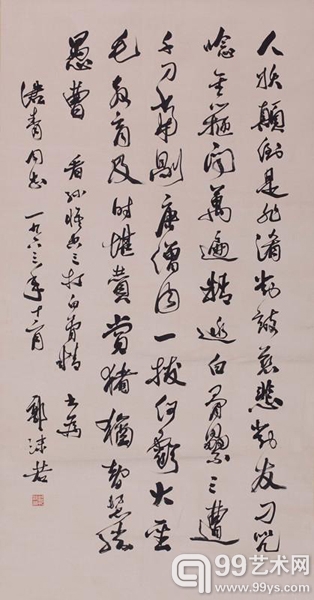 人妖顛倒是非淆對敵慈悲對友刁咒
念金箍聞萬遍精逃白骨累三遭
千刀當剮唐僧肉一拔何虧大聖
毛教育及時堪贊賞豬猶智慧勝
愚曹 看孙悟空三打白骨精 书为
浩青同志 一九六三年十二月 郭沫若
99艺术网
www.99ys.com